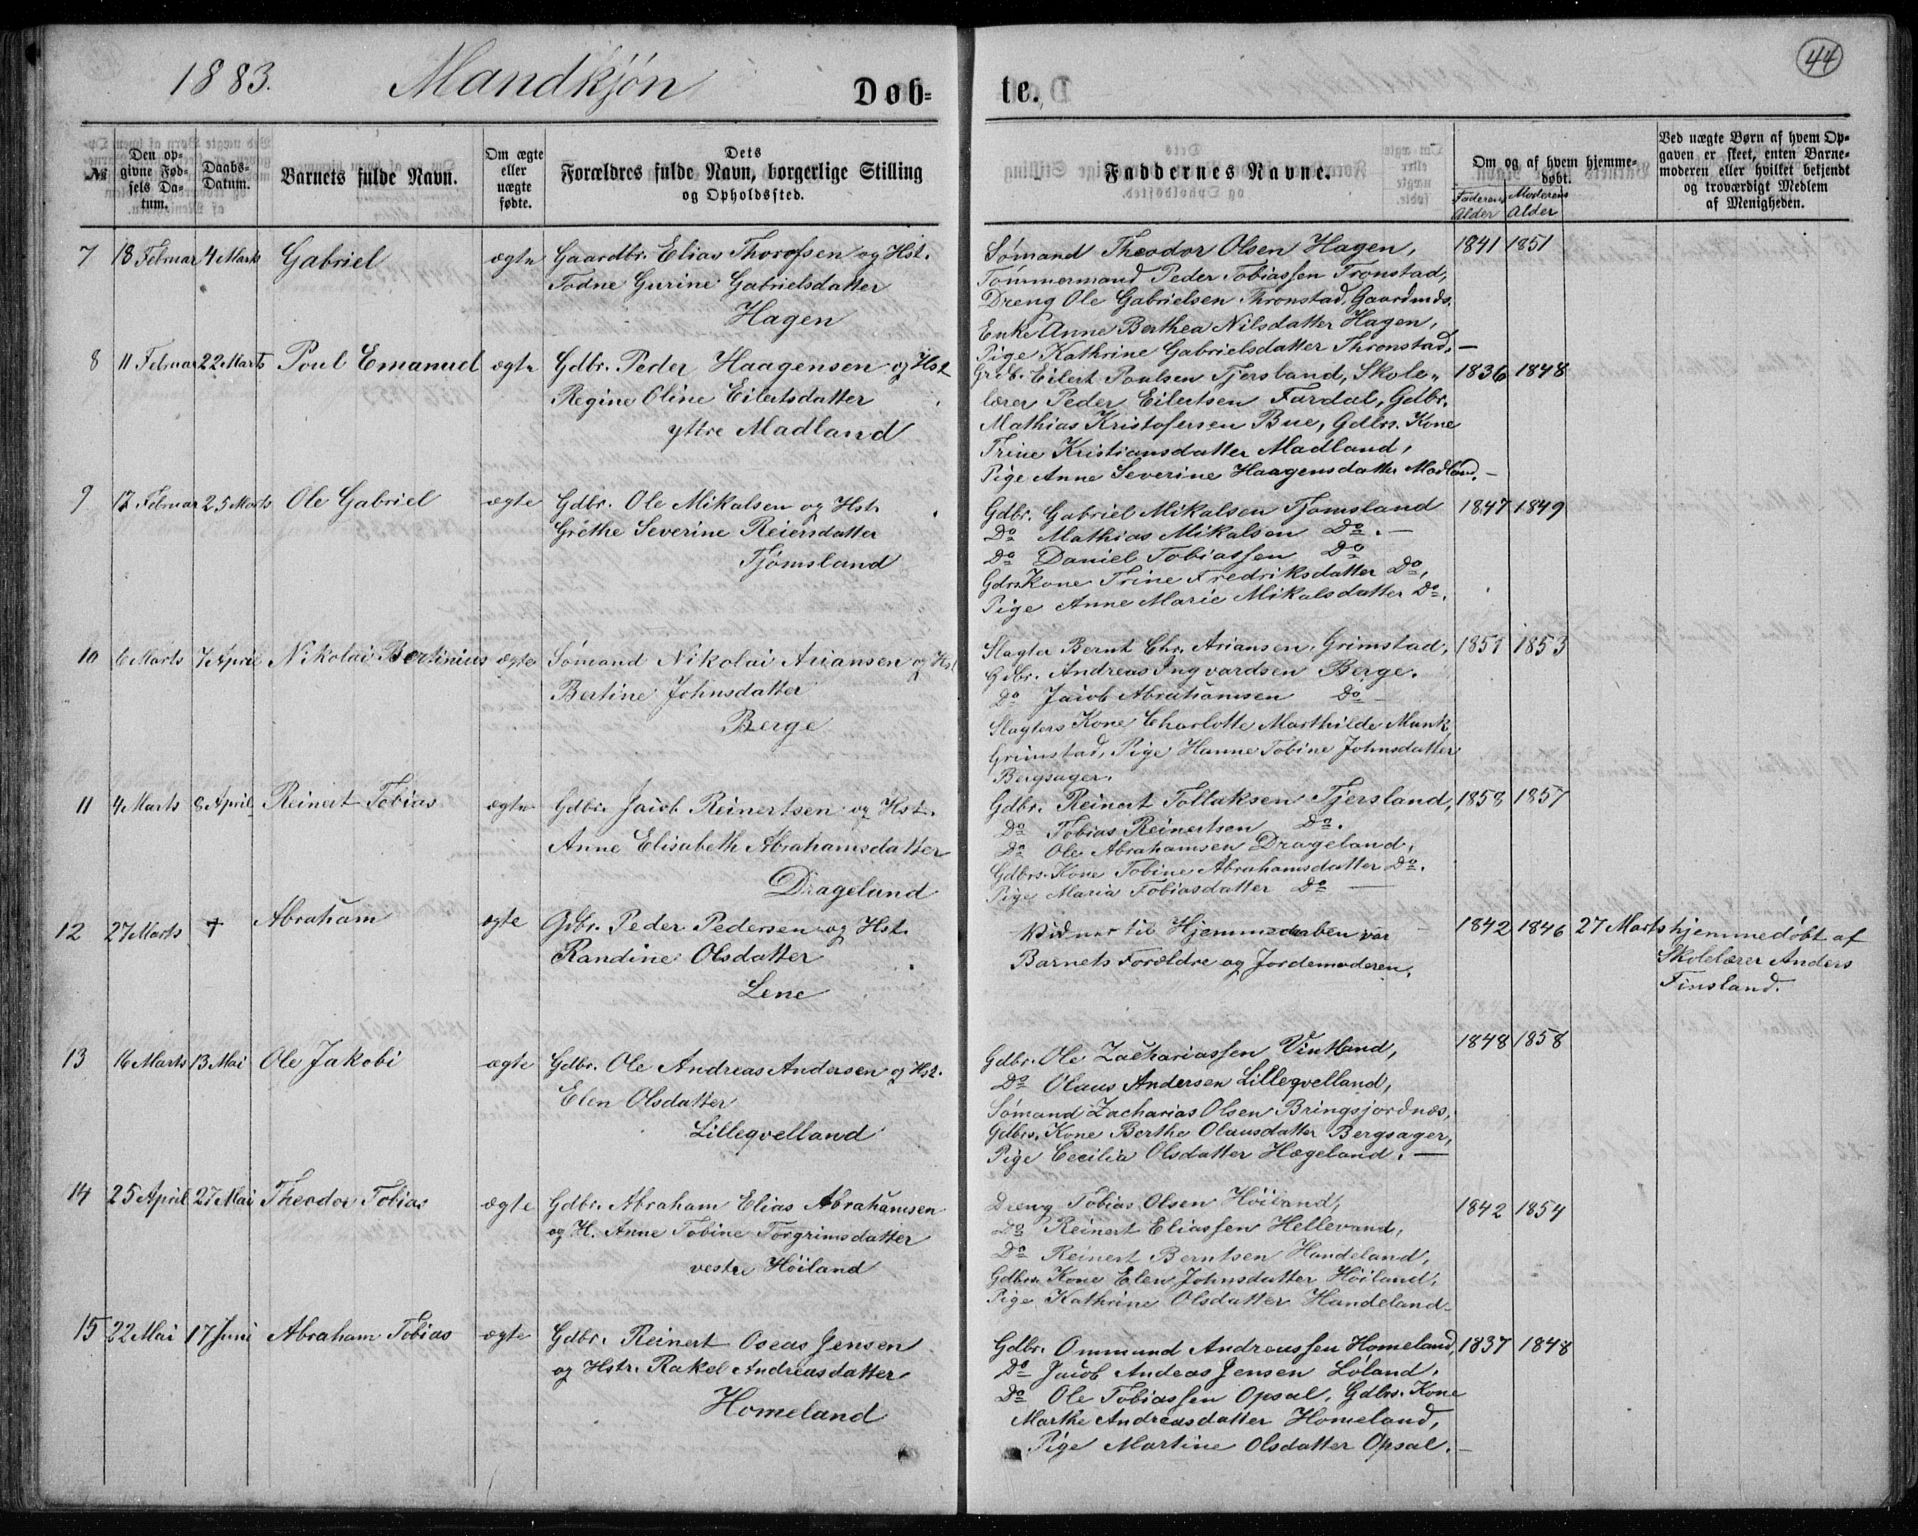 1883. Mandkjøn Døb=
te. 44
№ Den opgivne Fødsels Datum. Daabs-Datum. Barnets fulde Navn. Om ægte eller uægte fødte. Dets Forældres fulde Navn, borgerlige Stilling og Opholdssted.
Faddernes Navne. Om og af hvem hjemmedøbt. Faderens Alder Moderens Alder Ved uægte Børn af hvem Opgaven er skeet, enten Barnemoderen eller hvilket bekjendt og troværdigt Medlem af Menigheden.
7 18 Februar 4 Marts Gabriel ægte Gaardbr. Elias Thorofsen og Hst.
Todne Gurine Gabrielsdatter
Hagen
Sømand Theodor Olsen Hagen, 1841 1851
Tømmermand Peder Tobiassen Tronstad,
Dreng Ole Gabrielsen Thronstad, Gaardmds.
Enke Anne Berthea Nilsdatter Hagen,
Pige Kathrine Gabrielsdatter Thronstad. —
8 11 Februar 22 Marts Poul Emanuel ægte Gdbr. Peder Haagensen og Hst
Regine Oline Eilertsdatter
yttre Madland
Grdb. Eilert Poulsen Tjersland, Skole- 1836 1848
lærer Peder Eilertsen Fardal, Gdbr.
Mathias Kristofersen Bue, Gdbrs. Kone
Trine Kristiansdatter Madland,
Pige Anne Severine Haagensdatter Madland. —
9 17 Februar 25 Marts Ole Gabriel ægte Gdbr. Ole Mikalsen og Hst.
Grethe Severine Reiersdatter
Tjømsland
Gdbr. Gabriel Mikalsen Tjomsland 1847 1849
Do Mathias Mikalsen Do. —
Do Daniel Tobiassen Do
Gdrs Kone Trine Fredriksdatter Do,
Pige Anne Marie Mikalsdatter Do.
10 6 Marts 7 April Nikolai Bertinius ægte Sømand Nikolai Ariansen og Hst
Bertine Johnsdatter
Berge
Slagter Bernt Chr. Ariansen, Grimstad, 1851 1853
Gdbr. Andreas Ingvardsen Berge.
Do Jacob Abrahamsen Do —
Slagters Kone Charlotte Marthilde Munk,
Grimstad, Pige Hanne Tobine Johnsdatter
Bergsager.
11 4 Marts 8 April Reinert Tobias ægte Gdbr. Jacob Reinertsen og Hst.
Anne Elisabeth Abrahamsdatter
Drageland
Gdbr. Reinert Tollaksen Tjersland, 1858 1857
Do Tobias Reinertsen Do.
Do Ole Abrahamsen Drageland,
Gdbrs. Kone Tobine Abrahamsdatter Do.
Pige Maria Tobiasdatter Do —
12 27 Marts † Abraham ægte Gdbr. Peder Pedersen og Hst.
Randine Olsdatter
Lene
Vidner til Hjemmedaaben var 1842 1846 27 Marts hjemmedøbt af
Barnets Forældre og Jordemoderen. Skolelærer Anders
Finsland.
13 16 Marts 13 Mai Ole Jakobi ægte Gdbr. Ole Andreas Andersen og Hst.
Elen Olsdatter
Lillegvelland
Gdbr. Ole Zachariassen Vintland, 1848 1858
Do Olaus Andersen Lillegvelland,
Sømand Zacharias Olsen Bringsjordnæs,
Gdbrs. Kone Berthe Olausdatter Bergsager,
Pige Cecilia Olsdatter Hægeland. —
14 25 April 27 Mai Theodor Tobias ægte Gdbr. Abraham Elias Abrahamsen
og H. Anne Tobine Torgrimsdatter
vestre Höiland
Dreng Tobias Olsen Höiland, 1842 1854
Do Reinert Eliassen Hellevand,
Do Reinert Berntsen Handeland,
Gdbrs. Kone Elen Johnsdatter Höiland,
Pige Kathrine Olsdatter Handeland.
15 22 Mai 17 Juni Abraham Tobias ægte Gdbr. Reinert Oseas Jensen
og Hstr. Rakel Andreasdatter
Homeland
Gdbr. Ommund Andreassen Homeland, 1837 1848
Do Jacob Andeas Jensen Löland.
Do Ole Tobiassen Opsal, Gdbrs. Kone
Marthe Andreasdatter Homeland,
Pige Martine Olsdatter Opsal. —